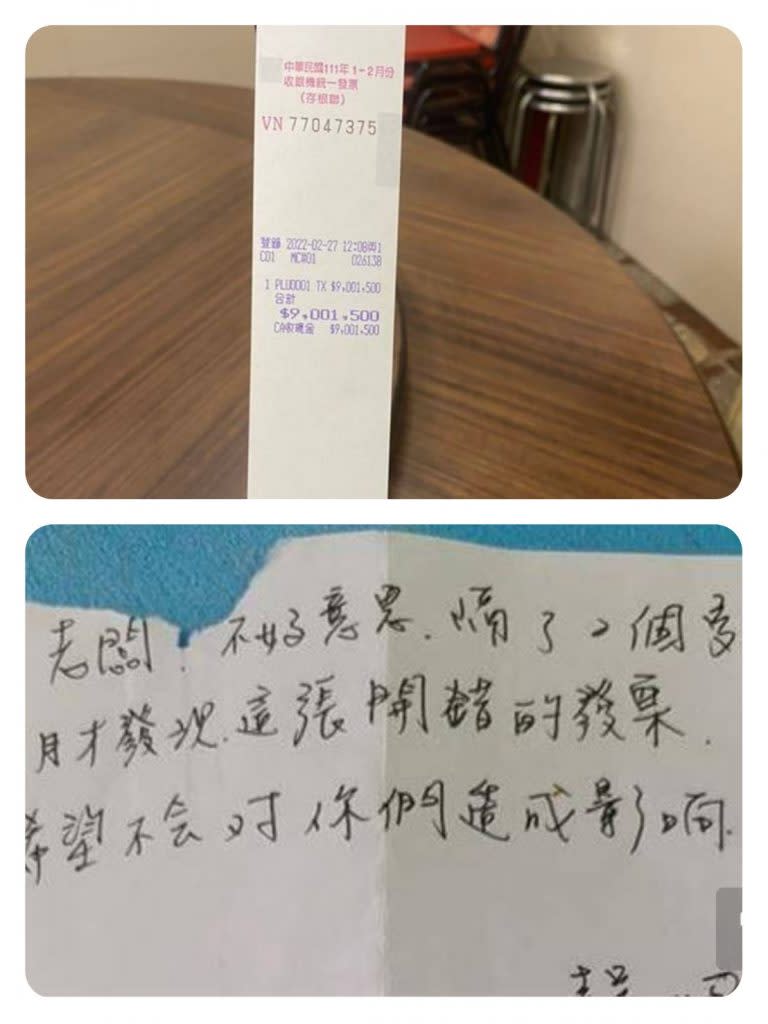 中華民國111年1-2月份
收銀機統一發票
(存根聯)
VN 77047375
2022-02-27 12:08
C01 MC#01 026138
1 PLU0001 TX $9,001,500
合計
$9,001,500
CA收現金 $9,001,500
老闆.不好意思.隔了2個多
月才發現.這張開錯的發票.
希望不会对你們造成影响.